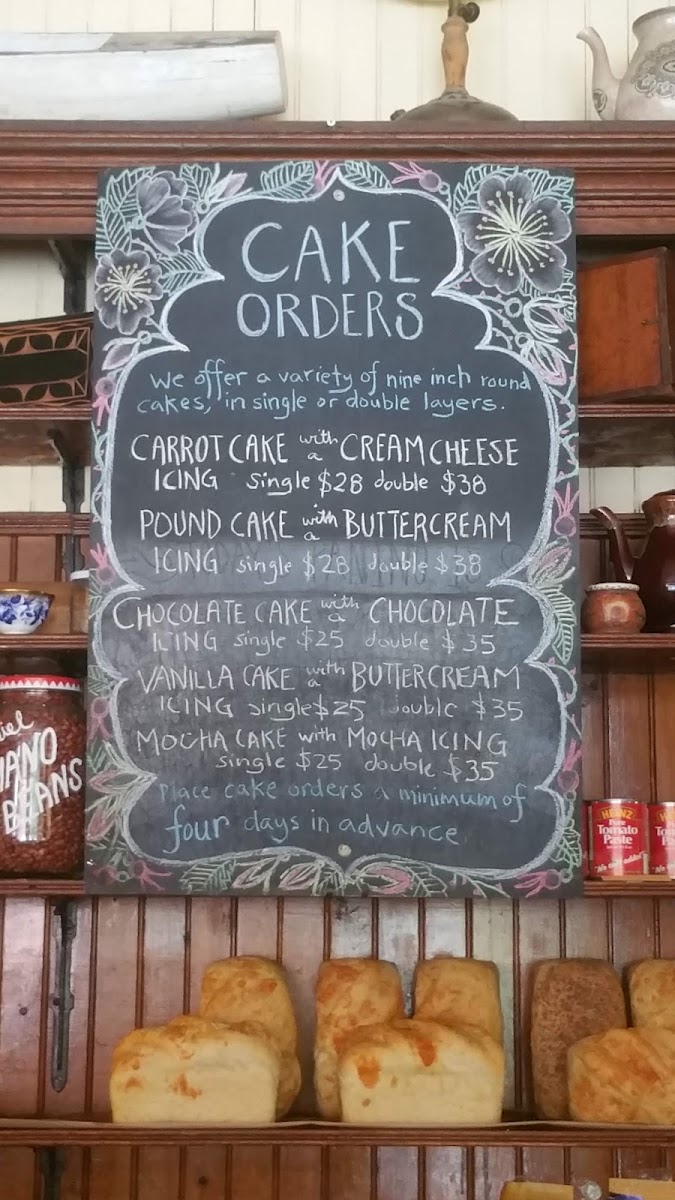 CAKE
ORDERS
We offer a variety of nine inch round
cakes, in single or double layers.
CARROT CAKE with a CREAM CHEESE
ICING single $28 double $38
POUND CAKE with a BUTTERCREAM
ICING single $28 double $38
CHOCOLATE CAKE with a CHOCOLATE
ICING single $25 double $35
VANILLA CAKE with a BUTTERCREAM
ICING single $25 double $35
MOCHA CAKE with MOCHA ICING
single $25 double $35
Place cake orders a minimum of
four days in advance.
iel
IANO
BEANS
HEINZ
Pure
Tomato
Paste
HEINZ